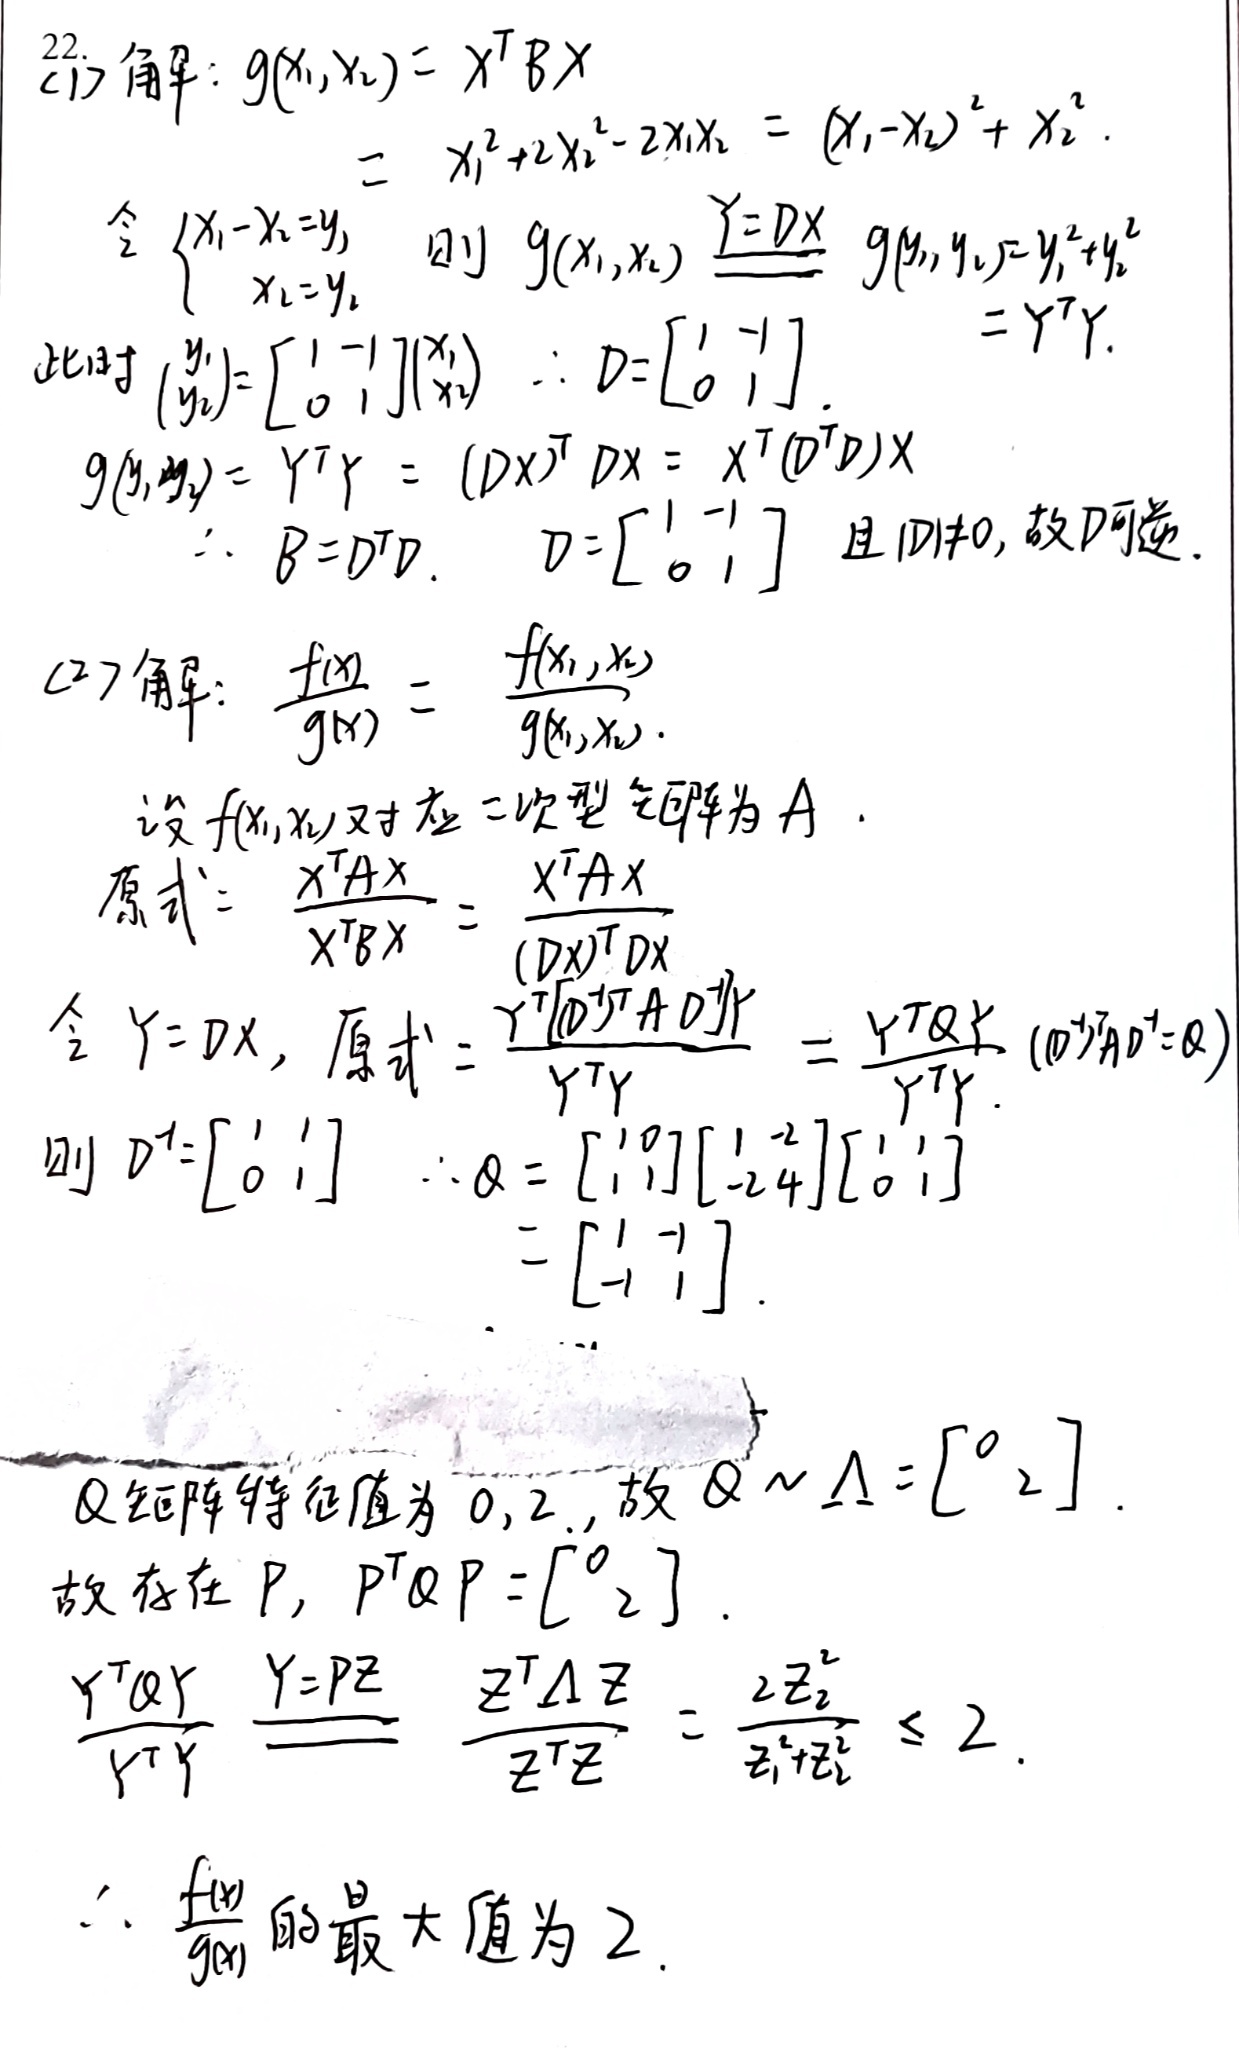 22.
(1) 解: g(x₁,x₂) = XᵀBX
= x₁²+2x₂²-2x₁x₂ = (x₁-x₂)²+x₂².
令 { x₁-x₂=y₁ 则 g(x₁,x₂) Y=DX g(y₁,y₂)=y₁²+y₂²
x₂=y₂ = YᵀY.
此时 (y₁ y₂) = [1 -1 0 1] (x₁ x₂) ∴ D=[1 -1 0 1].
g(y₁,y₂) = YᵀY = (DX)ᵀDX = Xᵀ(DᵀD)X
∴ B=DᵀD. D=[1 -1 0 1] 且|D|≠0, 故D可逆.
(2) 解: f(x)/g(x) = f(x₁,x₂)/g(x₁,x₂).
设 f(x₁,x₂) 对应二次型矩阵为 A.
原式= XᵀAX/XᵀBX = XᵀAX/(DX)ᵀDX
令 Y=DX, 原式= Yᵀ[(D⁻¹)ᵀAD⁻¹]Y/YᵀY = YᵀQY/YᵀY. ((D⁻¹)ᵀAD⁻¹=Q)
则 D⁻¹=[1 1 0 1] ∴ Q = [1 0 1 1][1 -2 -2 4][1 1 0 1]
= [1 -1 -1 1].
Q矩阵特征值为 0,2., 故 Q~Λ=[0 2].
故存在 P, PᵀQP=[0 2].
YᵀQY/YᵀY Y=PZ ZᵀΛZ/ZᵀZ = 2z₂²/z₁²+z₂² ≤ 2.
∴ f(x)/g(x) 的最大值为 2.